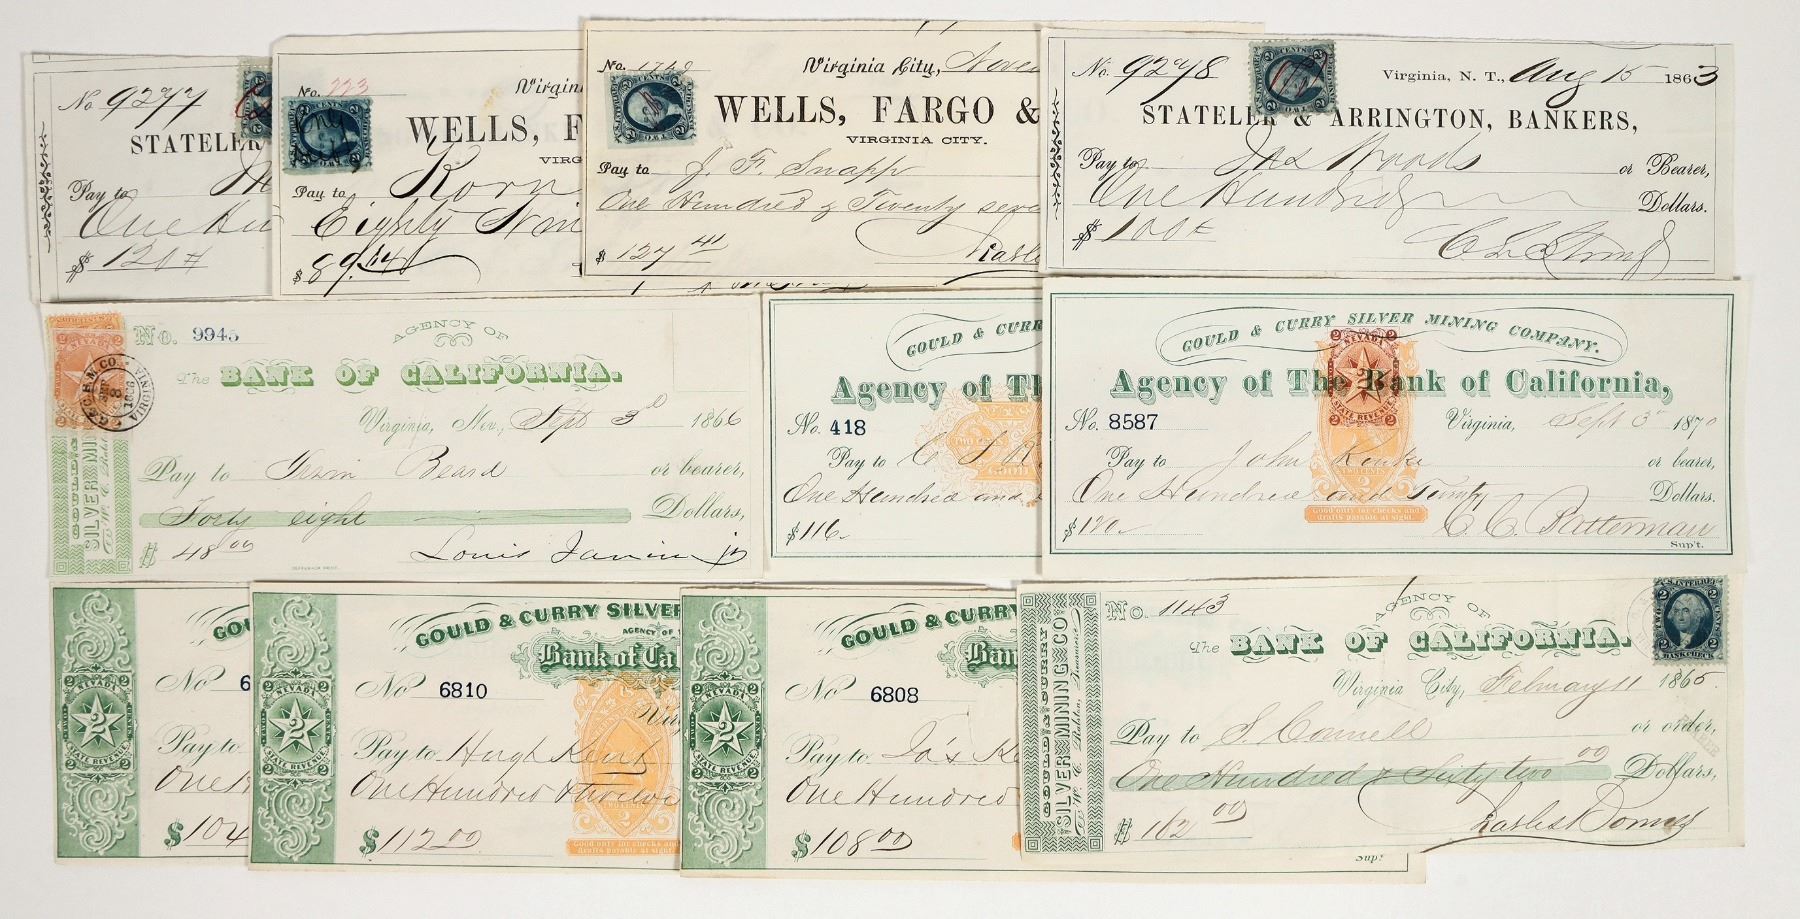 No 9277
STATELER
Pay to
One Hu
$ 120
No. 223
Virgin
WELLS, F
VIRG
Pay to Korn
Eighty Nin
$ 89.64
No. 1748
Virginia City, Novem
WELLS, FARGO &
VIRGINIA CITY.
Pay to J. F. Snapp
One Hundred & Twenty seve
$ 127 41
No. 9278
Virginia, N. T., Aug 15 1863
STATELER & ARRINGTON, BANKERS,
Pay to Jas Woods or Bearer,
One Hundred Dollars.
$ 100
No. 9945
AGENCY OF
The BANK OF CALIFORNIA.
Virginia, Nev., Sept 3d 1866
Pay to Irwin Beard or bearer,
Forty eight Dollars,
$ 48 00
Louis Janin jr
GOULD & CURR
Agency of Th
No. 418
Pay to C S
One Hundred and
$ 116
TWO CENTS
GOOD
GOULD & CURRY SILVER MINING COMPANY.
Agency of The Bank of California,
No. 8587
Virginia, Sept 3 1870
Pay to John or bearer,
One Hundred and Twenty Dollars.
$ 120
C. C. Batterman
Sup't.
NEVADA
2
STATE REVENUE
TWO CENTS
Good only for checks and
drafts payable at sight.
GOU
No 6
Pay to
One H
$ 104
NEVADA
TWO 2 CENTS
STATE REVENUE
GOULD & CURRY SILVER
AGENCY OF
Bank of Ca
No 6810
Pay to Hugh Kent
One Hundred & twelve
$ 112 00
NEVADA
TWO 2 CENTS
STATE REVENUE
TWO CENTS
Good only for checks and
drafts payable at sight.
GOULD & CURRY
Ban
No 6808
Pay to Ja's Ke
One Hundred
$ 108 00
NEVADA
TWO 2 CENTS
STATE REVENUE
Sup!
GOULD & CURRY
SILVER MINING CO.
No. 1143
AGENCY OF
The BANK OF CALIFORNIA.
Virginia City, February 11 1865
Pay to S. Cornell or order,
One Hundred & Sixty two 00 Dollars,
$ 162 00
U.S. INTER REV
TWO CENTS
BANK CHECK